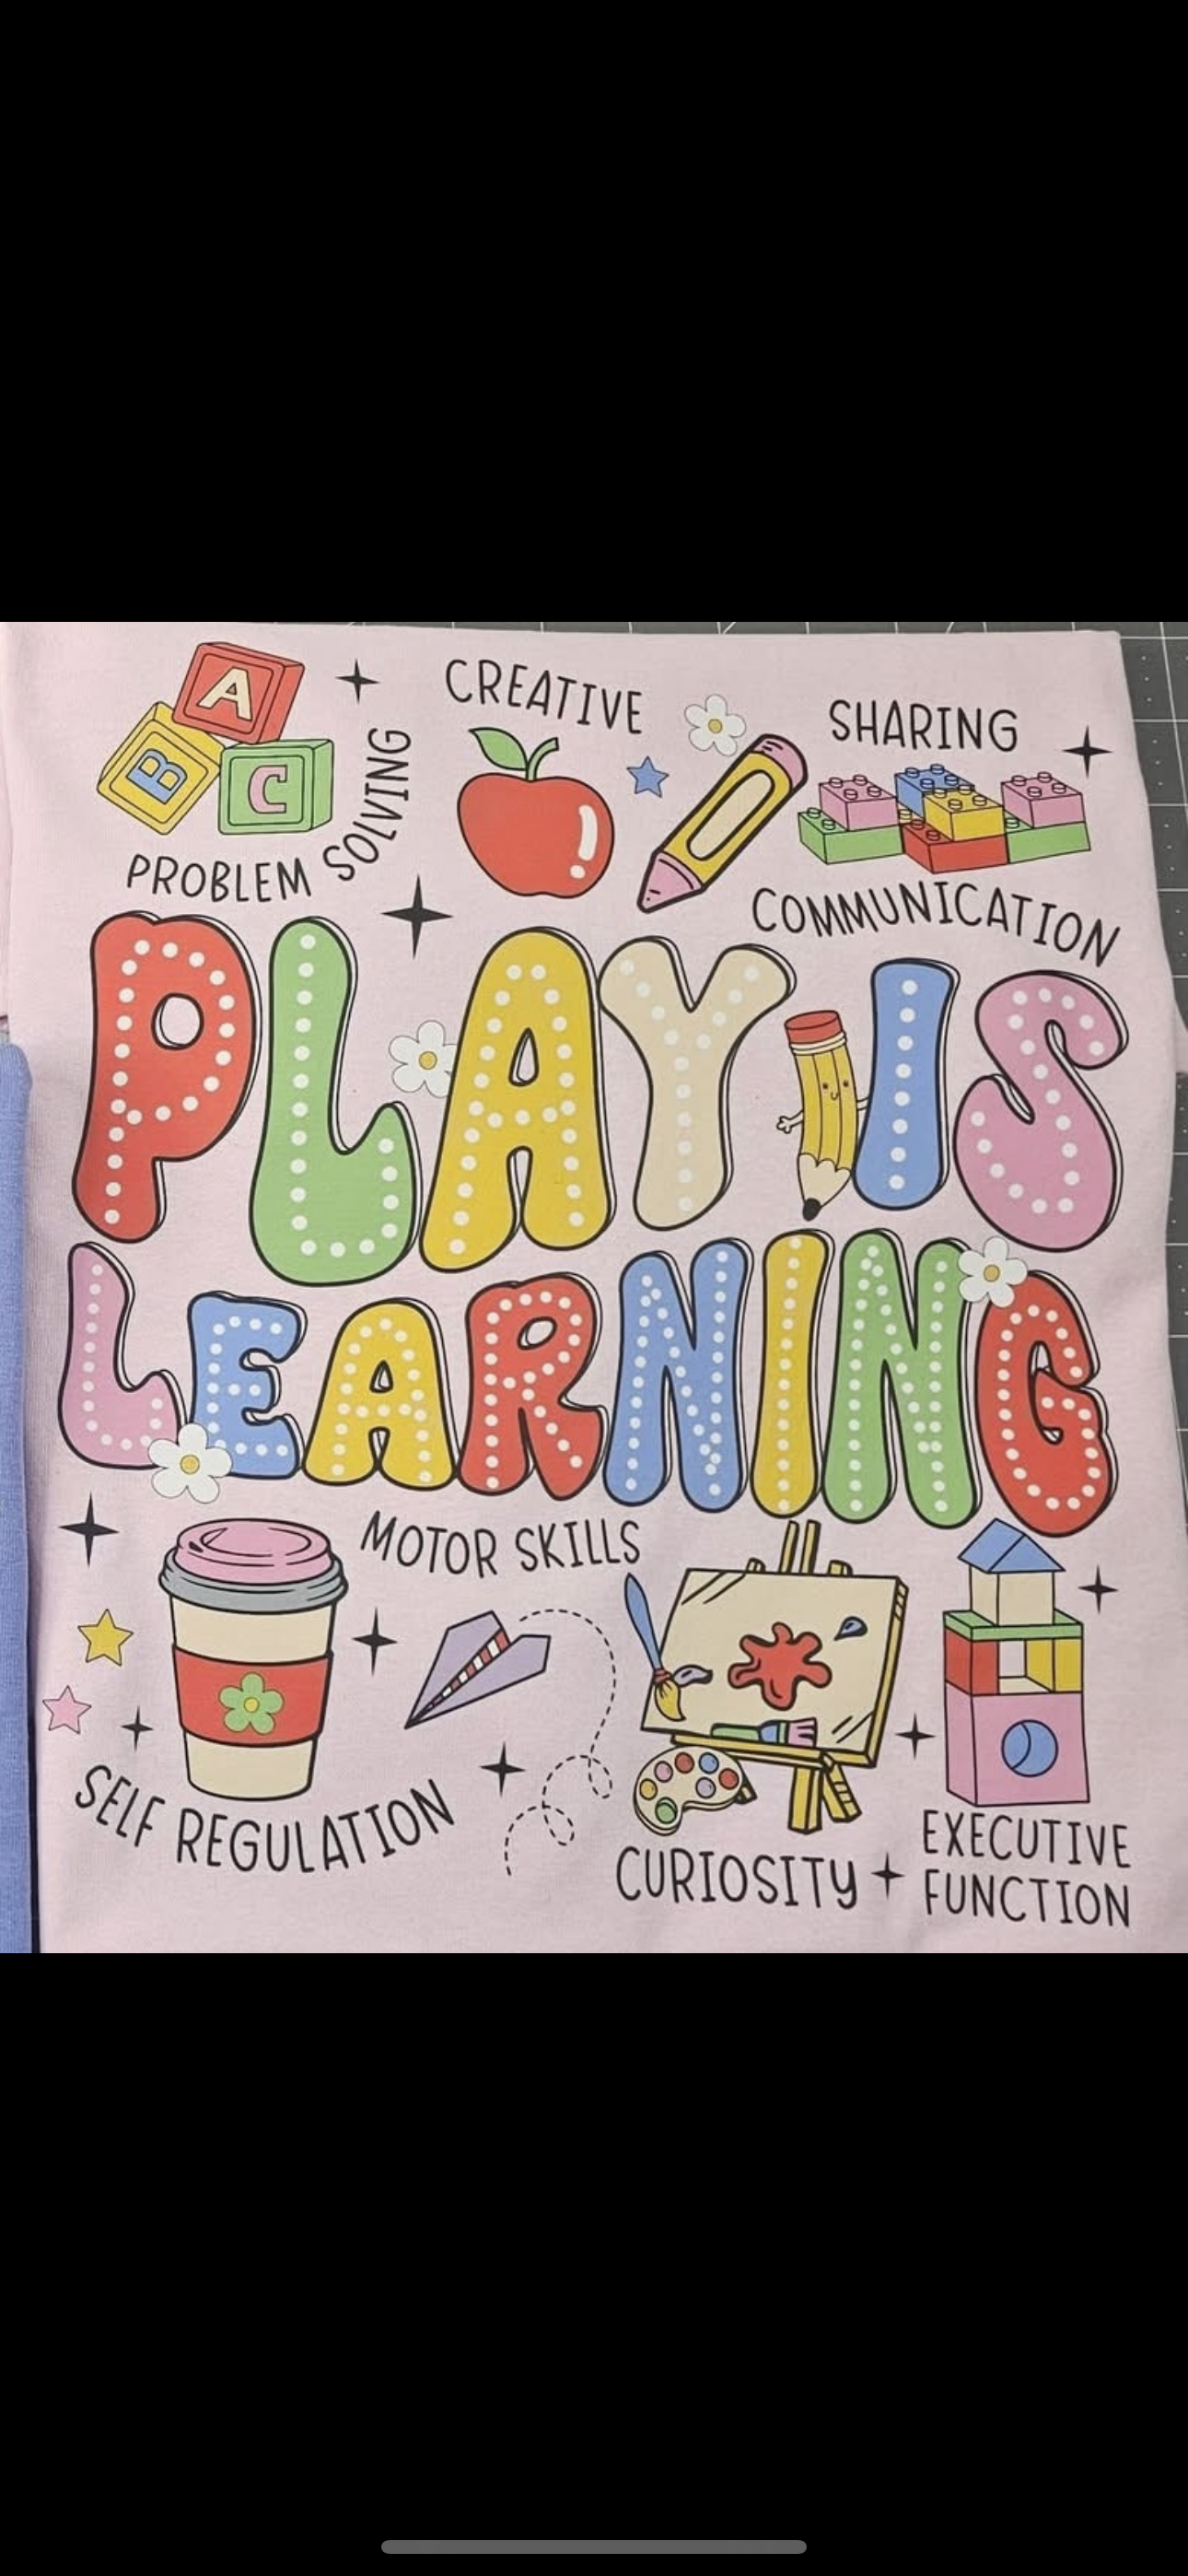 A
B
C
PROBLEM SOLVING
CREATIVE
SHARING
COMMUNICATION
PLAY IS
LEARNING
MOTOR SKILLS
SELF REGULATION
CURIOSITY
EXECUTIVE
FUNCTION